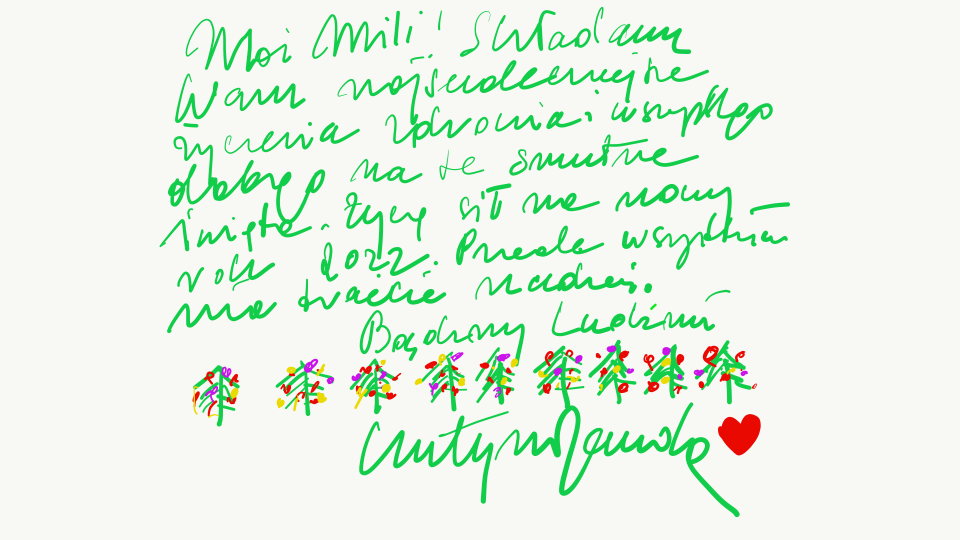 Moi Mili! Składam
Wam najserdeczniejsze
życzenia zdrowia i wszystkiego
dobrego na te smutne
święta. Życzę sił na nowy
rok 2022. Przede wszystkim
nie traćcie nadziei.
Bądźmy Ludźmi